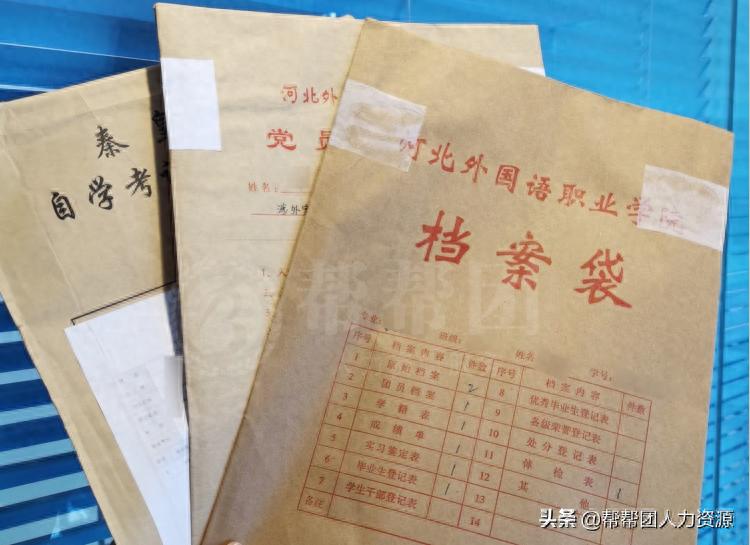 秦皇
自学考
河北外
党员
姓名:
河北外国语职业学院
档案袋
专业: 班级: 姓名 学号:
序号 档案内容 件数 序号 档案内容 件数
1 原始档案 2 8 优秀毕业生登记表
2 团员档案 1 9 各级荣誉登记表
3 学籍表 1 10 处分登记表
4 成绩单 11 体检表 1
5 实习鉴定表 1 12 其他
6 毕业生登记表 1 13
7 学生干部登记表 14
备注
帮帮团
头条 @帮帮团人力资源